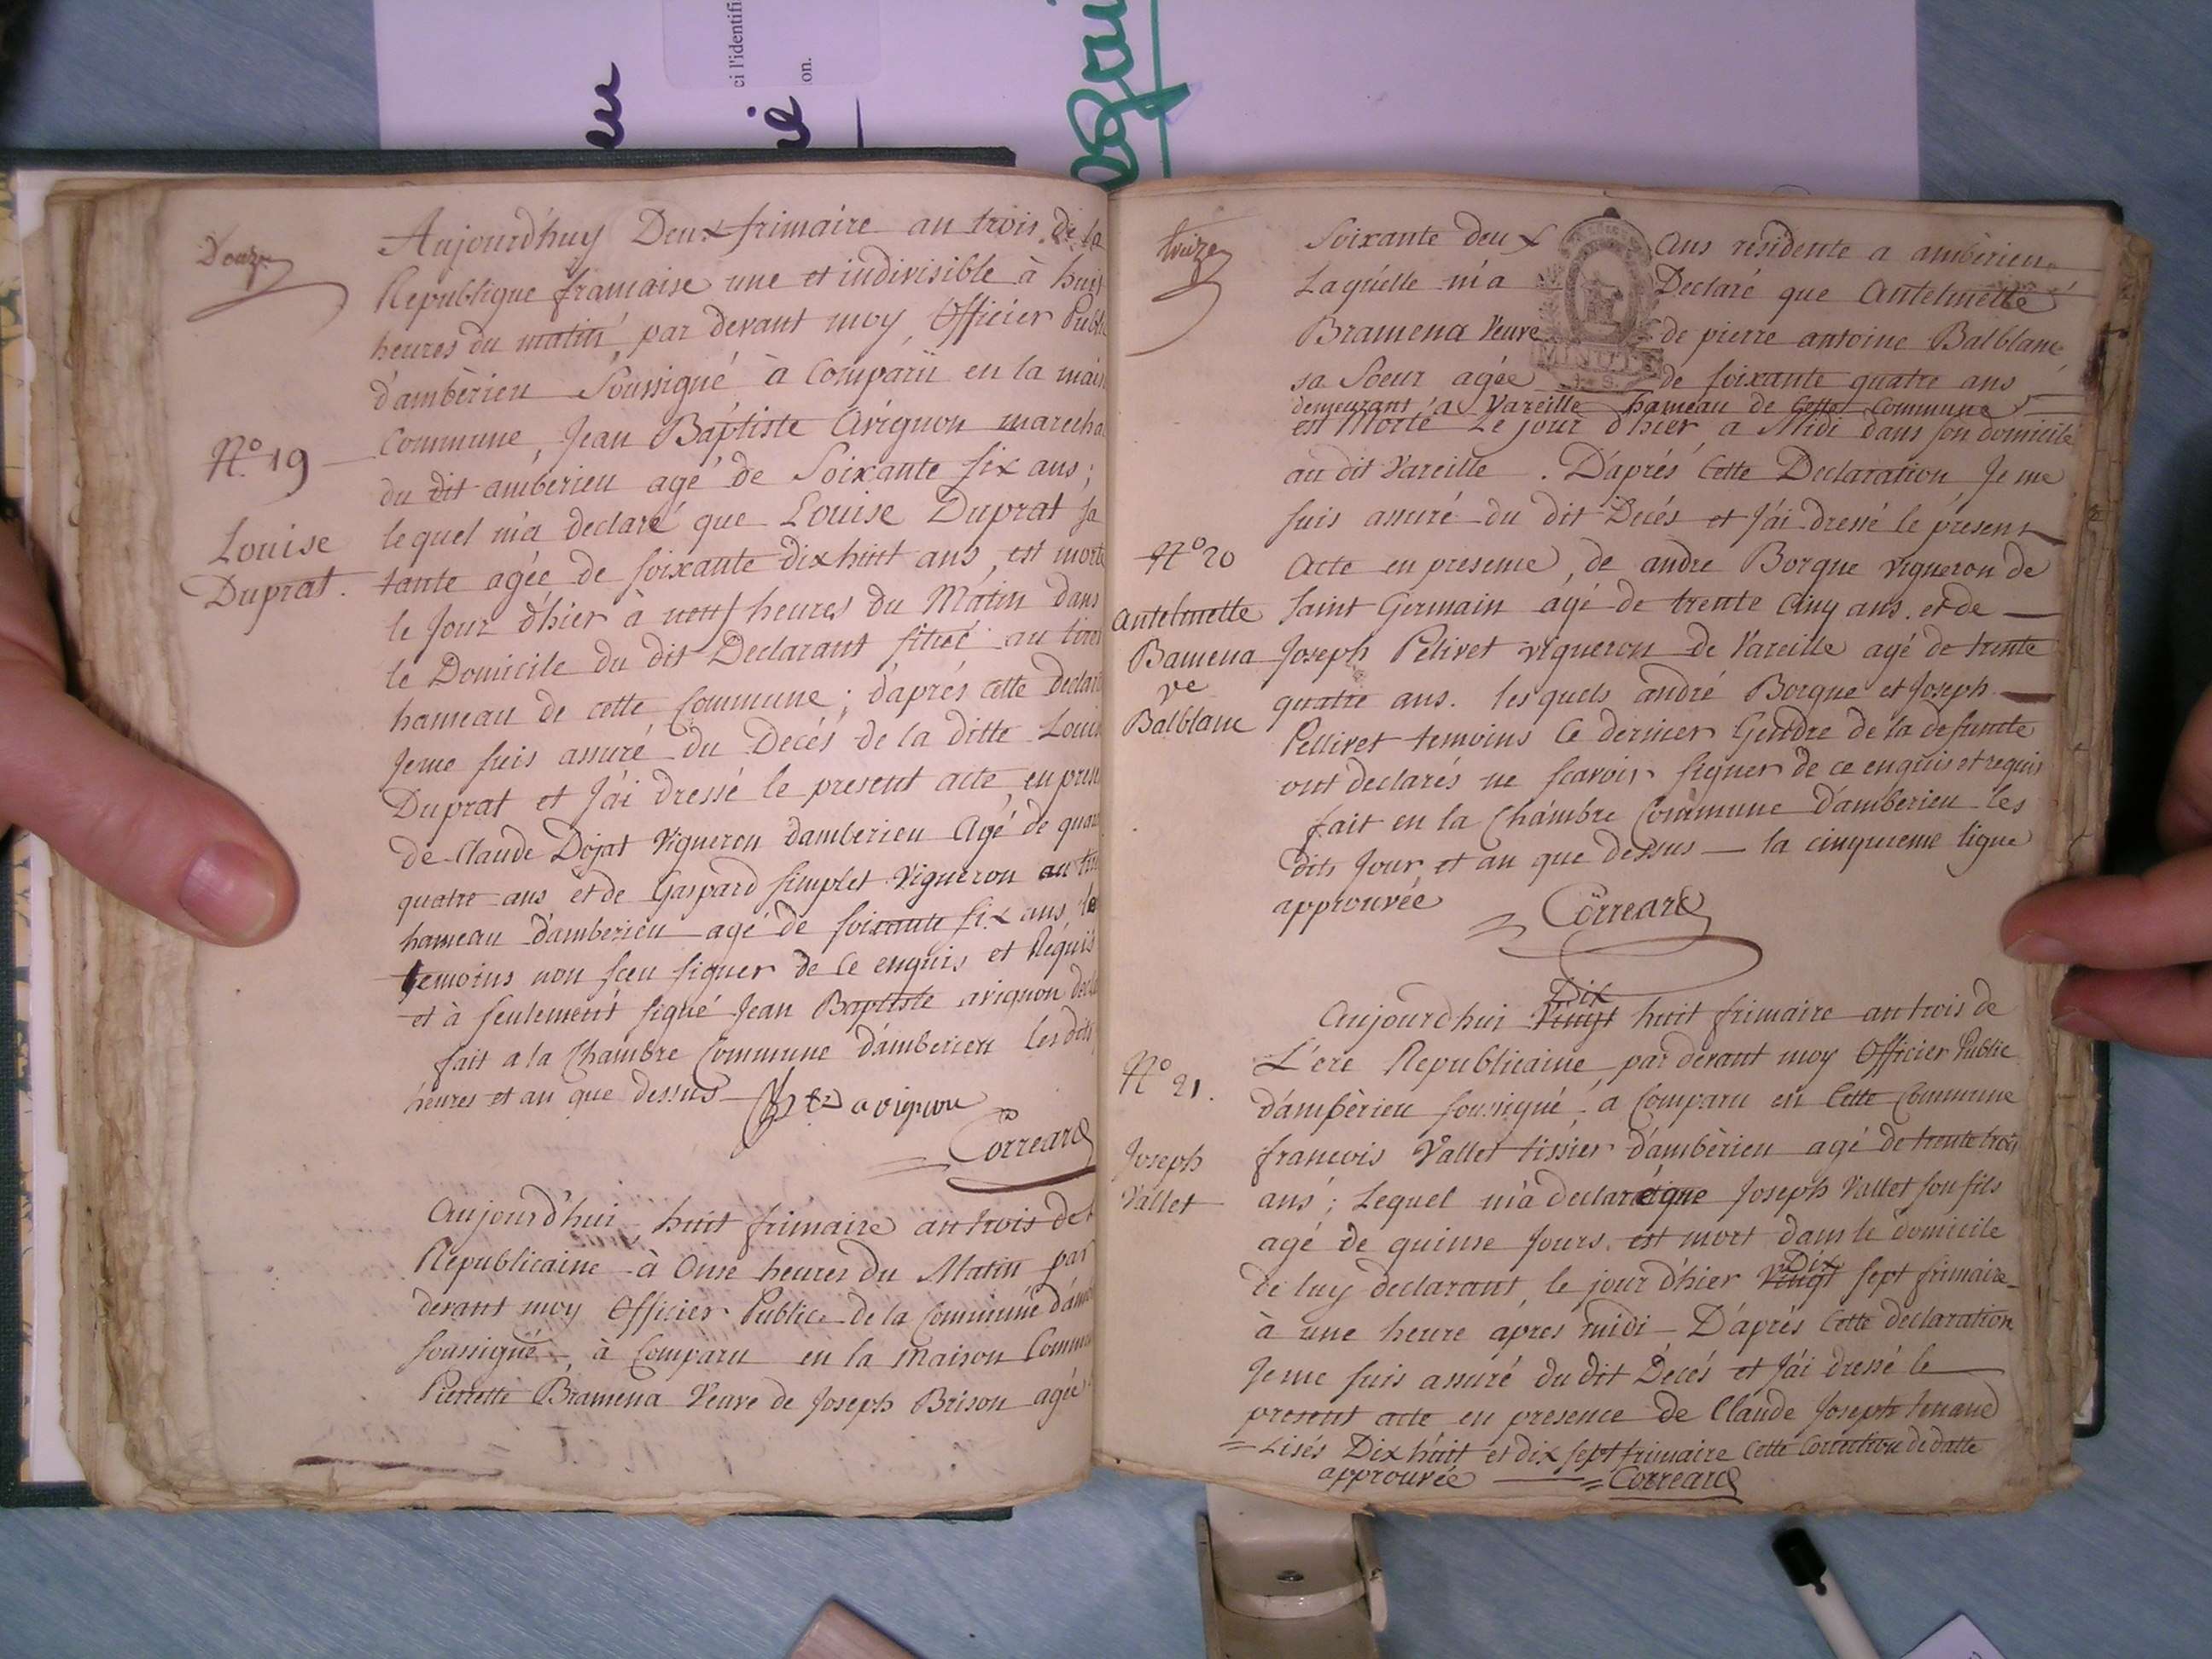 ci l'identifi
on.
Douze
Aujourd'huy Deux frimaire an trois de la
Republique francaise une et indivisible à huit
heures du matin par devant moy Officier Public
d'ambèrieu Soussigné à Comparü en la mais
Commune, Jean Baptiste Avignon marecha
N.º 19
du dit ambérieu agé de Soixante six ans;
lequel m'a declaré que Louise Duprat sa
Louise
Duprat.
tante agée de soixante dix huit ans, est morte
le Jour d'hier à neuf heures du Matin dans
le Domicile du dit Declarant situé au tiret
hameau de cette Commune; d'aprés cette declara
Jeme suis assuré du Decés de la ditte Louis
Duprat et J'ai dressé le present acte en prese
de Claude Dojat Vigneron damberieu Agé de quar
quatre ans et de Gaspard Simplet Vigneron au tir
hameau d'amberieu agé de soixante six ans, les
temoins non sceu signer de ce enquis et Requis
et à seulement signé Jean Baptiste avignon decla
fait a la Chambre Commune d'amberieu les dits
heures et an que dessus
avignon
Correard
Aujourd'hui huit frimaire an trois de l
Republicaine à Onse heures du Matin par
devant moy Officier Public de la Commune d'amb
soussigné, à Comparu en la Maison Commu
Pierrette Bramena Veuve de Joseph Brison agée
treize
Soixante deux Ans residente a ambèrieu
Laquelle m'a Declaré que Antelmette
Bramena Veuve de pierre antoine Balblanc
MINUTE
sa Soeur agée de soixante quatre ans
demeurant a Vareille hameau de Cette Commune
est Morte Le jour d'hier a Midi dans son domicile
au dit Vareille. D'aprés Cette Declaration Je me
suis assuré du dit Decés et J'ai dressé le present
N.º 20
Acte en presence, de andre Borque vigneron de
Antelmette
Bamena
ve
Balblanc
Saint Germain agé de trente Cinq ans. et de
Joseph Pelivet vigneron de Vareille agé de trente
quatre ans. lesquels andré Borque et Joseph
Pellivet temoins Ce dernier Gendre de la defunte
ont declarés ne scavoir signer de ce enquis et requis
fait en la Chambre Commune d'amberieu les
dits Jour, et an que dessus — la cinquieme ligne
approuvée
Correard
Dix
Aujourdhui Vingt huit frimaire an trois de
L'ere Republicaine par devant moy Officier Public
N.º 21.
d'ambèrieu soussigné, a Comparu en Cette Commune
Joseph
Vallet
francois Vallet tissier d'ambèrieu agé de trente trois
ans; Lequel m'a declaré que Joseph Vallet son fils
agé de quinse Jours, est mort dans le domicile
Dix
de luy declarant, le jour d'hier Vingt sept frimaire
à une heure aprés midi — D'aprés Cette declaration
Jeme suis assuré du dit Decés et J'ai dressé le
present acte en presence de Claude Joseph tenand
= Lisés Dix huit et dix sept frimaire Cette Correction de datte
approuvée = Correard